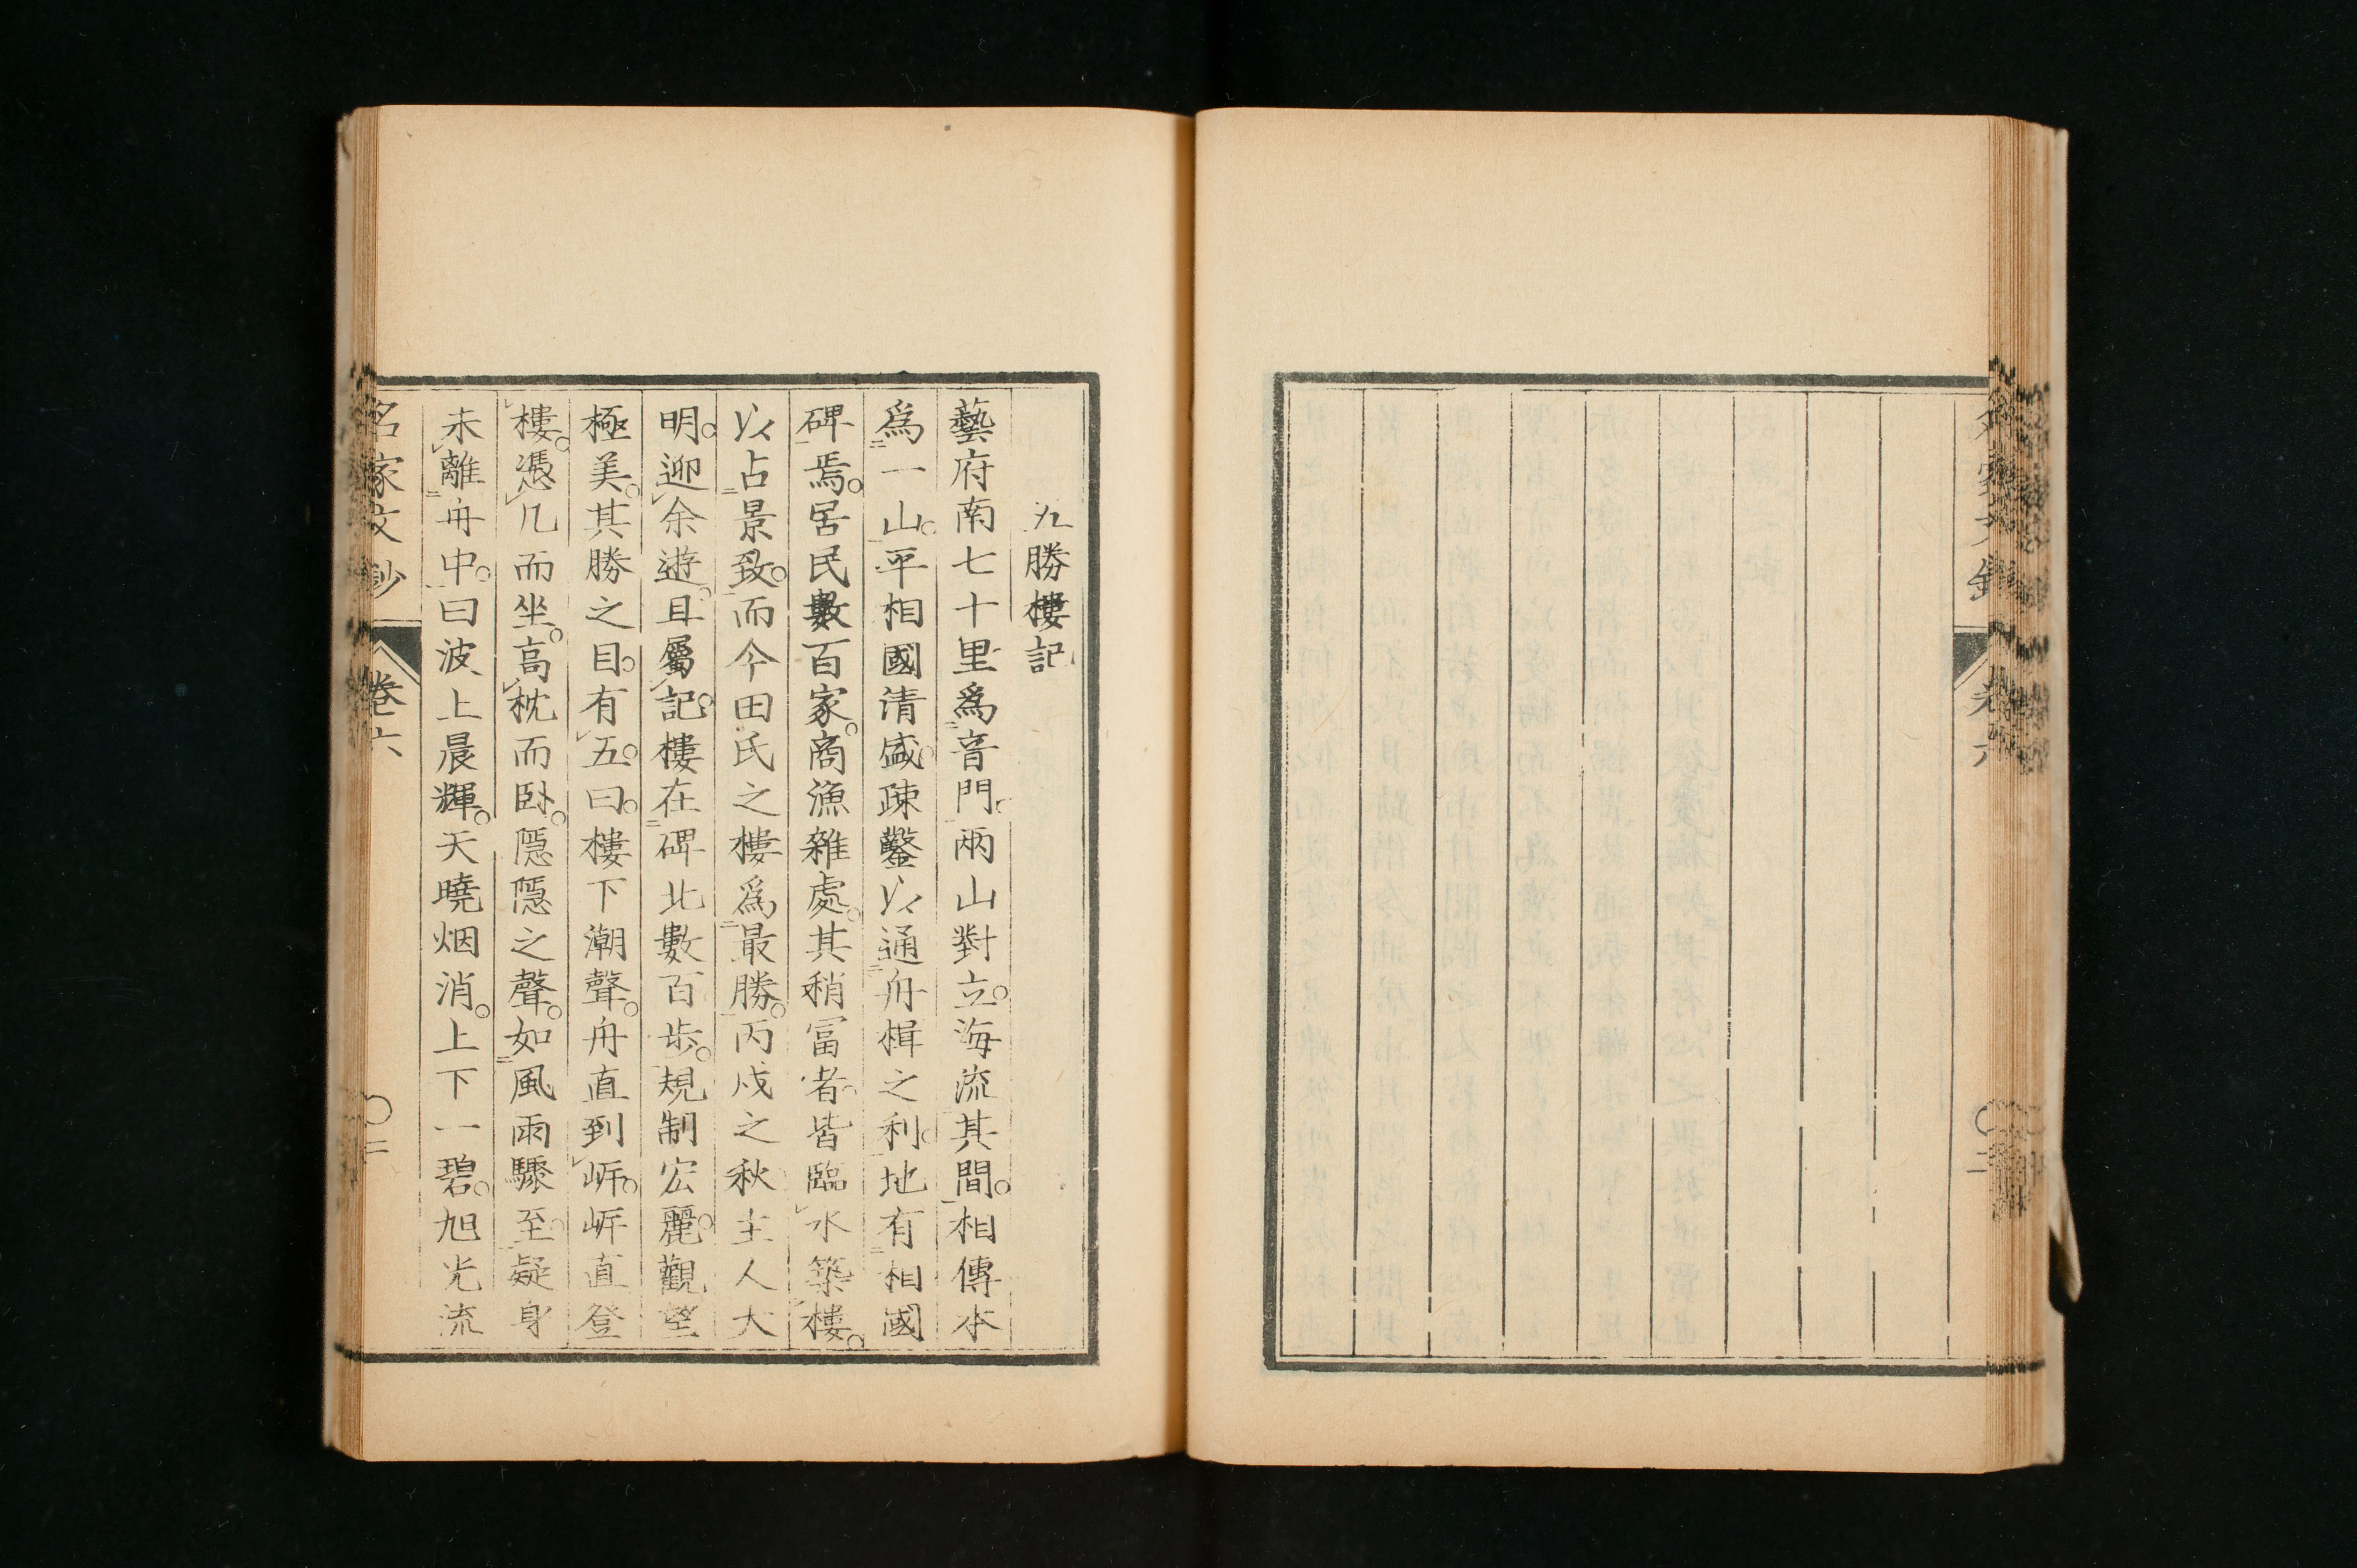 九勝樓記
藝府南七十里爲音門。兩山對立。海流其間。相傳本
爲一山。平相國清盛。疎鑿以通舟楫之利。地有相國
碑焉。居民數百家。商漁雜處。其稍冨者。皆臨水築樓。
以占景致。而今田氏之樓爲最勝。丙戌之秋主人大
明。迎余遊。且屬記。樓在碑北數百步。規制宏麗。觀望
極美。其勝之目。有五。曰。樓下潮聲。舟直到㟁。㟁直登
樓。憑几而坐。高枕而臥。隱隱之聲。如風雨驟至。疑身
未離舟中。曰波上晨輝。天曉烟消。上下一碧。旭光流
名家文鈔
卷六